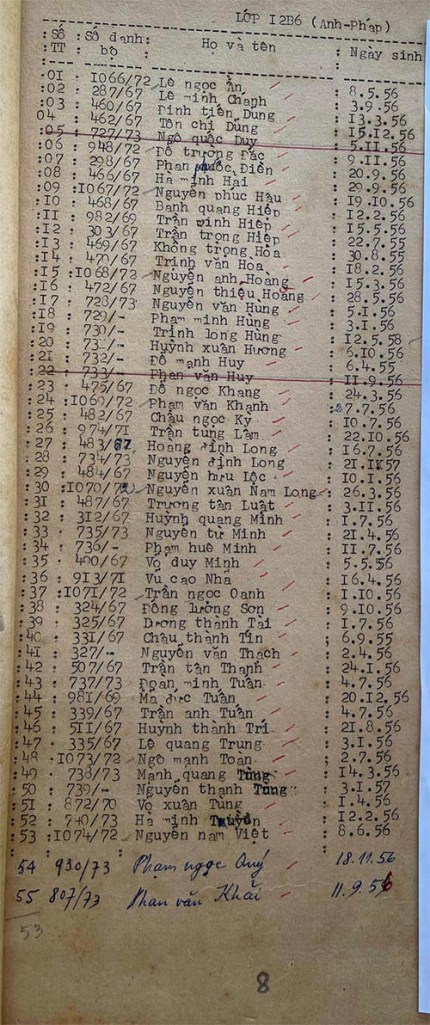 LỚP I2B6 (Anh-Pháp)
:Số :Số danh: Họ và tên : Ngày sinh
:TT : bộ :
:OI : IO66/72 Lê ngọc Ẩn : 8.5.56
:02 : 287/67 Lê minh Chanh : 3.9.56
:03 : 460/67 Đinh tiến Dung : I3.3.56
04 : 462/67 Tôn chị Dũng : I5.I2.56
:05 : 727/73 Ngô quốc Duy : 5.II.56
:06 : 948/72 Đỗ trương Đắc : 9.II.56
:07 : 298/67 Phan phước Điền : 20.9.56
:08 : 466/67 Hà minh Hải : 29.9.56
:09 :IO67/72 Nguyễn phúc Hậu : I9.IO.56
:IO : 468/67 Bành quang Hiệp : I2.2.56
:II : 982/69 Trần vinh Hiệp : I5.5.56
:I2 : 303/67 Trần trọng Hiệp : 22.7.55
:I3 : 469/67 Khổng trọng Hòa : 30.8.55
:I4 : 470/67 Trịnh văn Hòa : I8.2.56
:I5 :IO68/72 Nguyễn anh Hoàng : I5.3.56
:I6 : 472/67 Nguyễn thiệu Hoàng : 28.5.56
:I7 : 728/73 Nguyễn văn Hùng : 5.I.56
:I8 : 729/- Phạm minh Hùng : 3.I.56
:I9 : 730/- Trịnh long Hùng : I2.5.58
:20 : 73I/- Huỳnh xuân Hương : 6.IO.56
:2I : 732/- Đỗ mạnh Huy : 6.4.55
:22 : 733/- Phan văn Huy : II.9.56
:23 : 475/67 Đỗ ngọc Khang : 24.3.56
:24 :IO69/72 Phạm văn Khanh : 7.7.56
:25 : 482/67 Châu ngọc Kỳ : IO.7.56
:26 : 974/7I Trần tùng Lâm : 22.IO.56
:27 : 483/67 Hoàng đình Long : I6.7.56
:28 : 734/73 Nguyễn định Long : 2I.II.57
:29 : 484/67 Nguyễn hữu Lộc : IO.I.56
:30 :IO70/72 Nguyễn xuân Nam Long : 26.3.56
:3I : 487/67 Trương tấn Luật : 3.II.56
:32 : 3I2/67 Huỳnh quang Minh : I.7.56
:33 : 735/73 Nguyễn tử Minh : 2I.4.56
:34 : 736/- Phạm huê Minh : II.7.56
:35 : 490/67 Võ duy Minh : 5.5.56
:36 : 9I3/7I Vũ cao Nhã : I6.4.56
:37 :IO7I/72 Trần ngọc Oanh : I.IO.56
:38 : 324/67 Đồng lương Sơn : 9.IO.56
:39 : 325/67 Dương thành Tài : I.7.56
:40 : 33I/67 Châu thành Tín ; 6.9.55
:4I : 327/- Nguyễn văn Thạch : 2.4.56
:42 : 507/67 Trần tấn Thành : 24.I.56
:43 : 737/73 Đoàn minh Tuấn : 4.7.56
:44 : 98I/69 Mã đức Tuấn : 20.I2.56
:45 : 339/67 Trần anh Tuấn : 4.7.56
:46 : 5II/67 Huỳnh thành Trí : 2I.8.56
:47 : 335/67 Lê quang Trung : 3.I.56
:48 :IO73/72 Ngô mạnh Toàn ; 2.7.56
:49 : 738/73 Mạnh quang Tùng : I4.3.56
:50 : 739/- Nguyễn thanh Tùng : 3.I.57
:5I : 872/70 Võ xuân Tùng : I.4.56
:52 : 740/73 Hà minh Truyền : I2.2.56
:53 :IO74/72 Nguyễn nam Việt : 8.6.56
54 930/73 Phạm ngọc Quý 18.11.56
55 807/73 Phan văn Khải 11.9.56
53
8